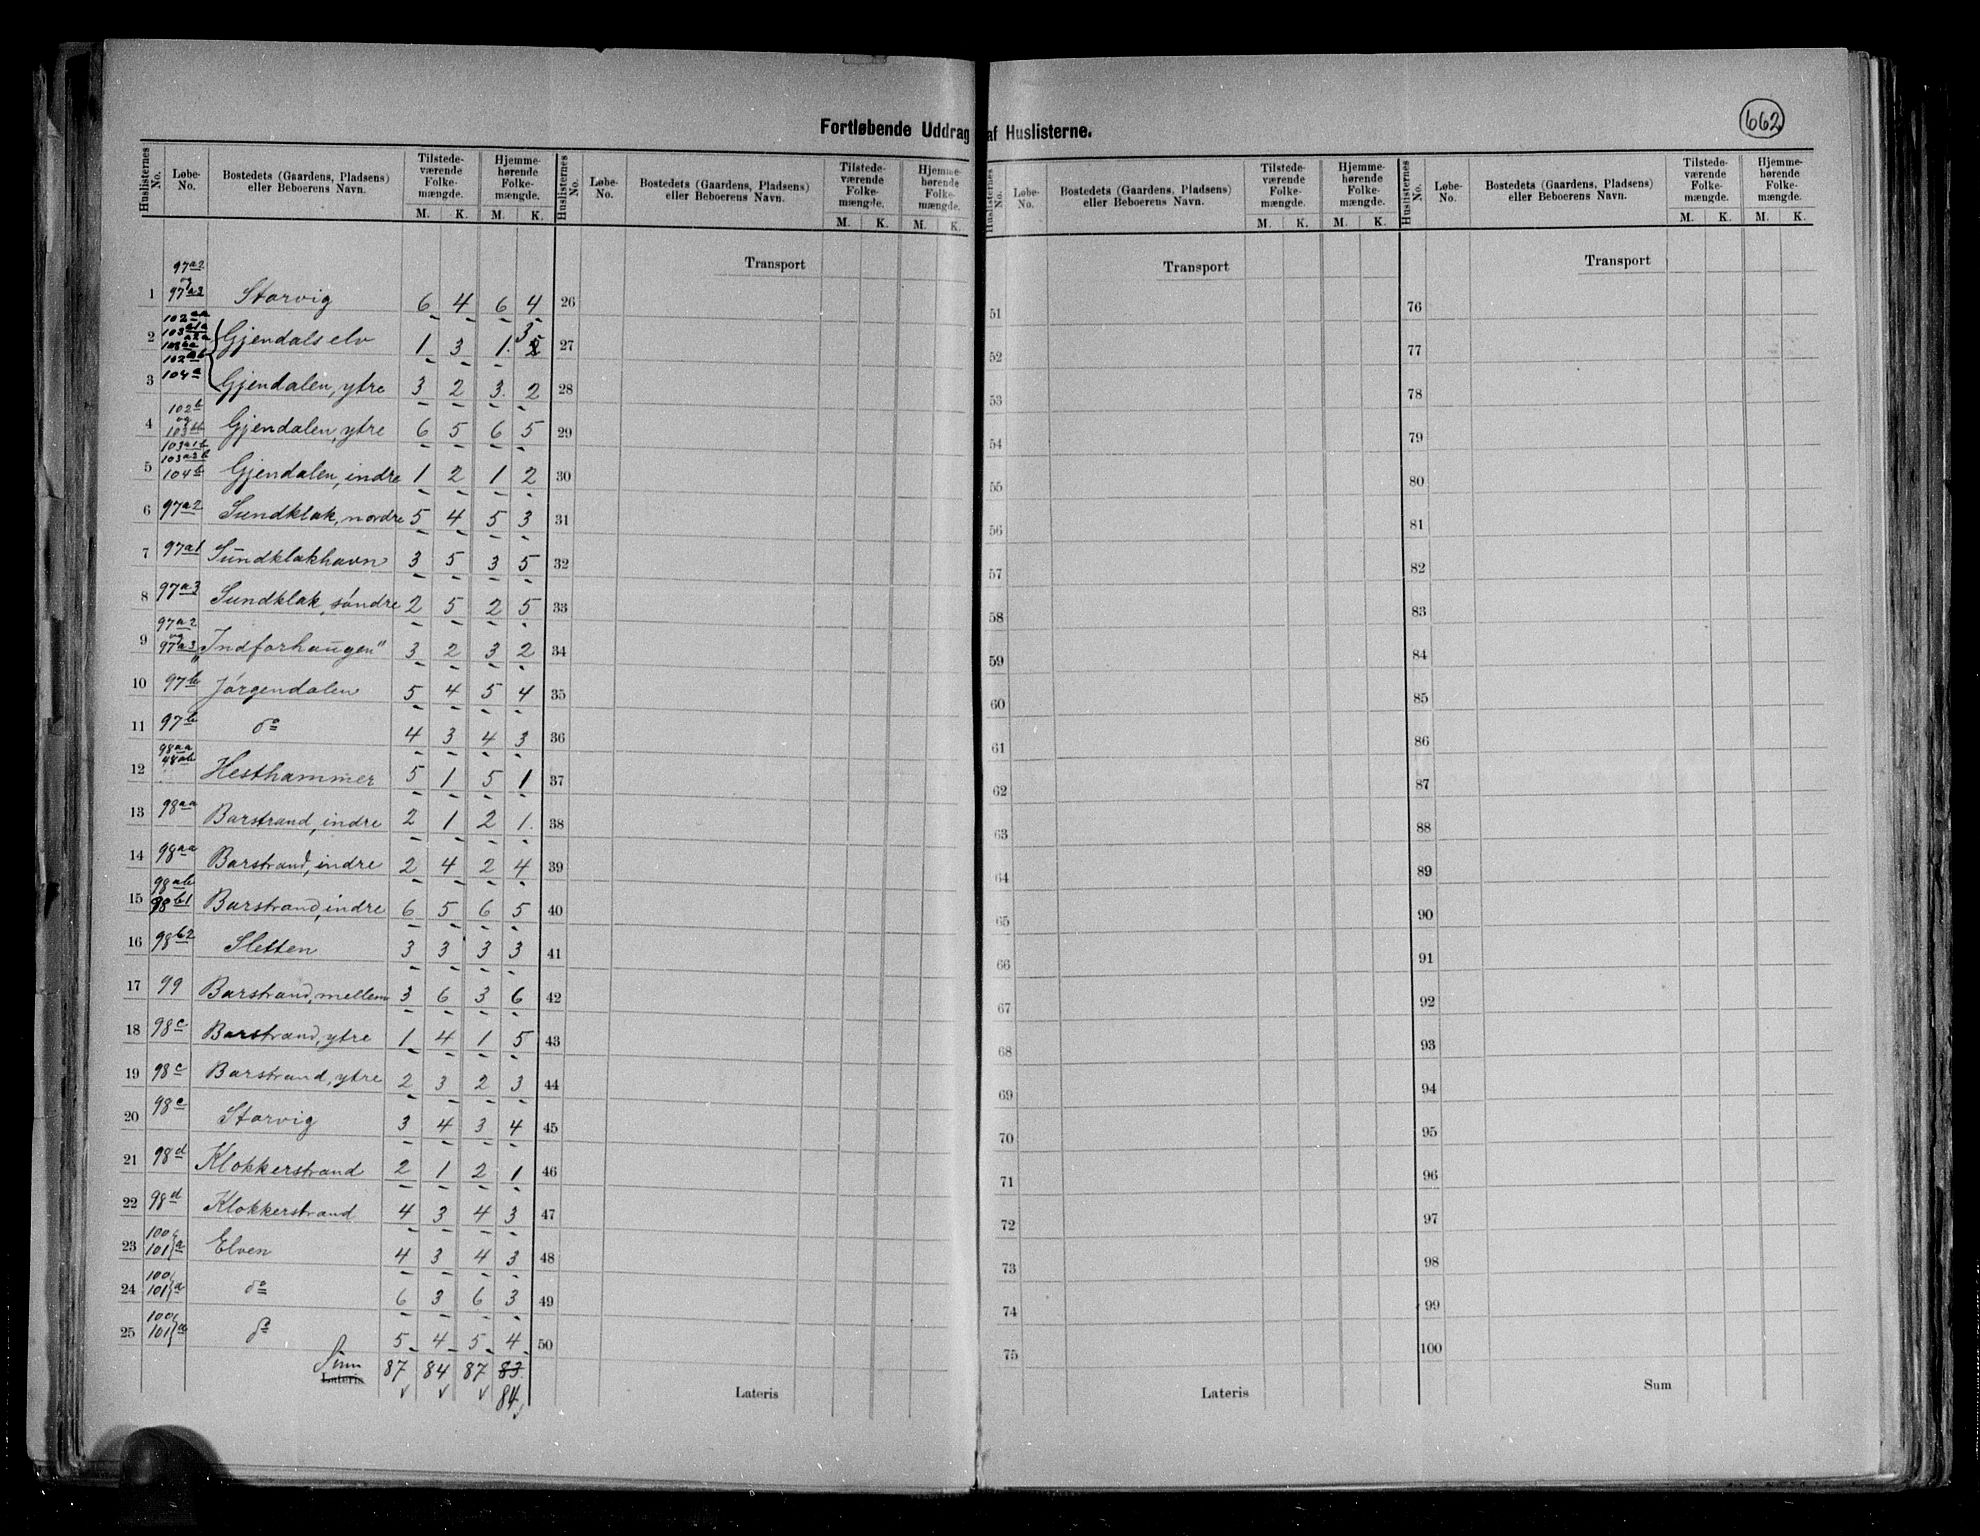 Fortløbende Uddrag af Huslisterne.
662
Huslisternes No. Løbe-No. Bostedets (Gaardens, Pladsens) eller Beboerens Navn. Tilstedeværende Folkemængde. M. K. Hjemmehørende Folkemængde. M. K.
Huslisternes No. Løbe-No. Bostedets (Gaardens, Pladsens) eller Beboerens Navn. Tilstedeværende Folkemængde. M. K. Hjemmehørende Folkemængde. M. K.
Huslisternes No. Løbe-No. Bostedets (Gaardens, Pladsens) eller Beboerens Navn. Tilstedeværende Folkemængde. M. K. Hjemmehørende Folkemængde. M. K.
Huslisternes No. Løbe-No. Bostedets (Gaardens, Pladsens) eller Beboerens Navn. Tilstedeværende Folkemængde. M. K. Hjemmehørende Folkemængde. M. K.
97a2 og
1 97a3 Storvig 6 4 6 4
2 Gjendals elv 1 3 1 3
3 104a Gjendalen, ytre 3 2 3 2
102b og
4 Gjendalen, ytre 6 5 6 5
103a1b
103a3b
5 104b Gjendalen, indre 1 2 1 2
6 97a2 Sundklak, nordre 5 4 5 3
7 97a1 Sundklakhavn 3 5 3 5
8 97a3 Sundklak, söndre 2 5 2 5
97a2 og
9 97a3 "Indforhaugen" 3 2 3 2
10 97b Jörgendalen 5 4 5 4
11 97b do 4 3 4 3
98aa
98ab
12 Hesthammer 5 1 5 1
13 98aa Barstrand, indre 2 1 2 1
14 98aa Barstrand, indre 2 4 2 4
98ab
15 98b1 Barstrand, indre 6 5 6 5
16 98b2 Sletten 3 3 3 3
17 99 Barstrand, mellem 3 6 3 6
18 98c Barstrand, ytre 1 4 1 5
19 98c Barstrand, ytre 2 3 2 3
20 98c Storvig 3 4 3 4
21 98d Klokkerstrand 2 1 2 1
22 98d Klokkerstrand 4 3 4 3
23 100 101 a Elven 4 3 4 3
24 100 101 a do 6 3 6 3
25 100 101 do 5 4 5 4
Sum Lateris 87 84 87 83
84
Transport
26
27
28
29
30
31
32
33
34
35
36
37
38
39
40
41
42
43
44
45
46
47
48
49
50
Lateris
Transport
51
52
53
54
55
56
57
58
59
60
61
62
63
64
65
66
67
68
69
70
71
72
73
74
75
Lateris
Transport
76
77
78
79
80
81
82
83
84
85
86
87
88
89
90
91
92
93
94
95
96
97
98
99
100
Sum